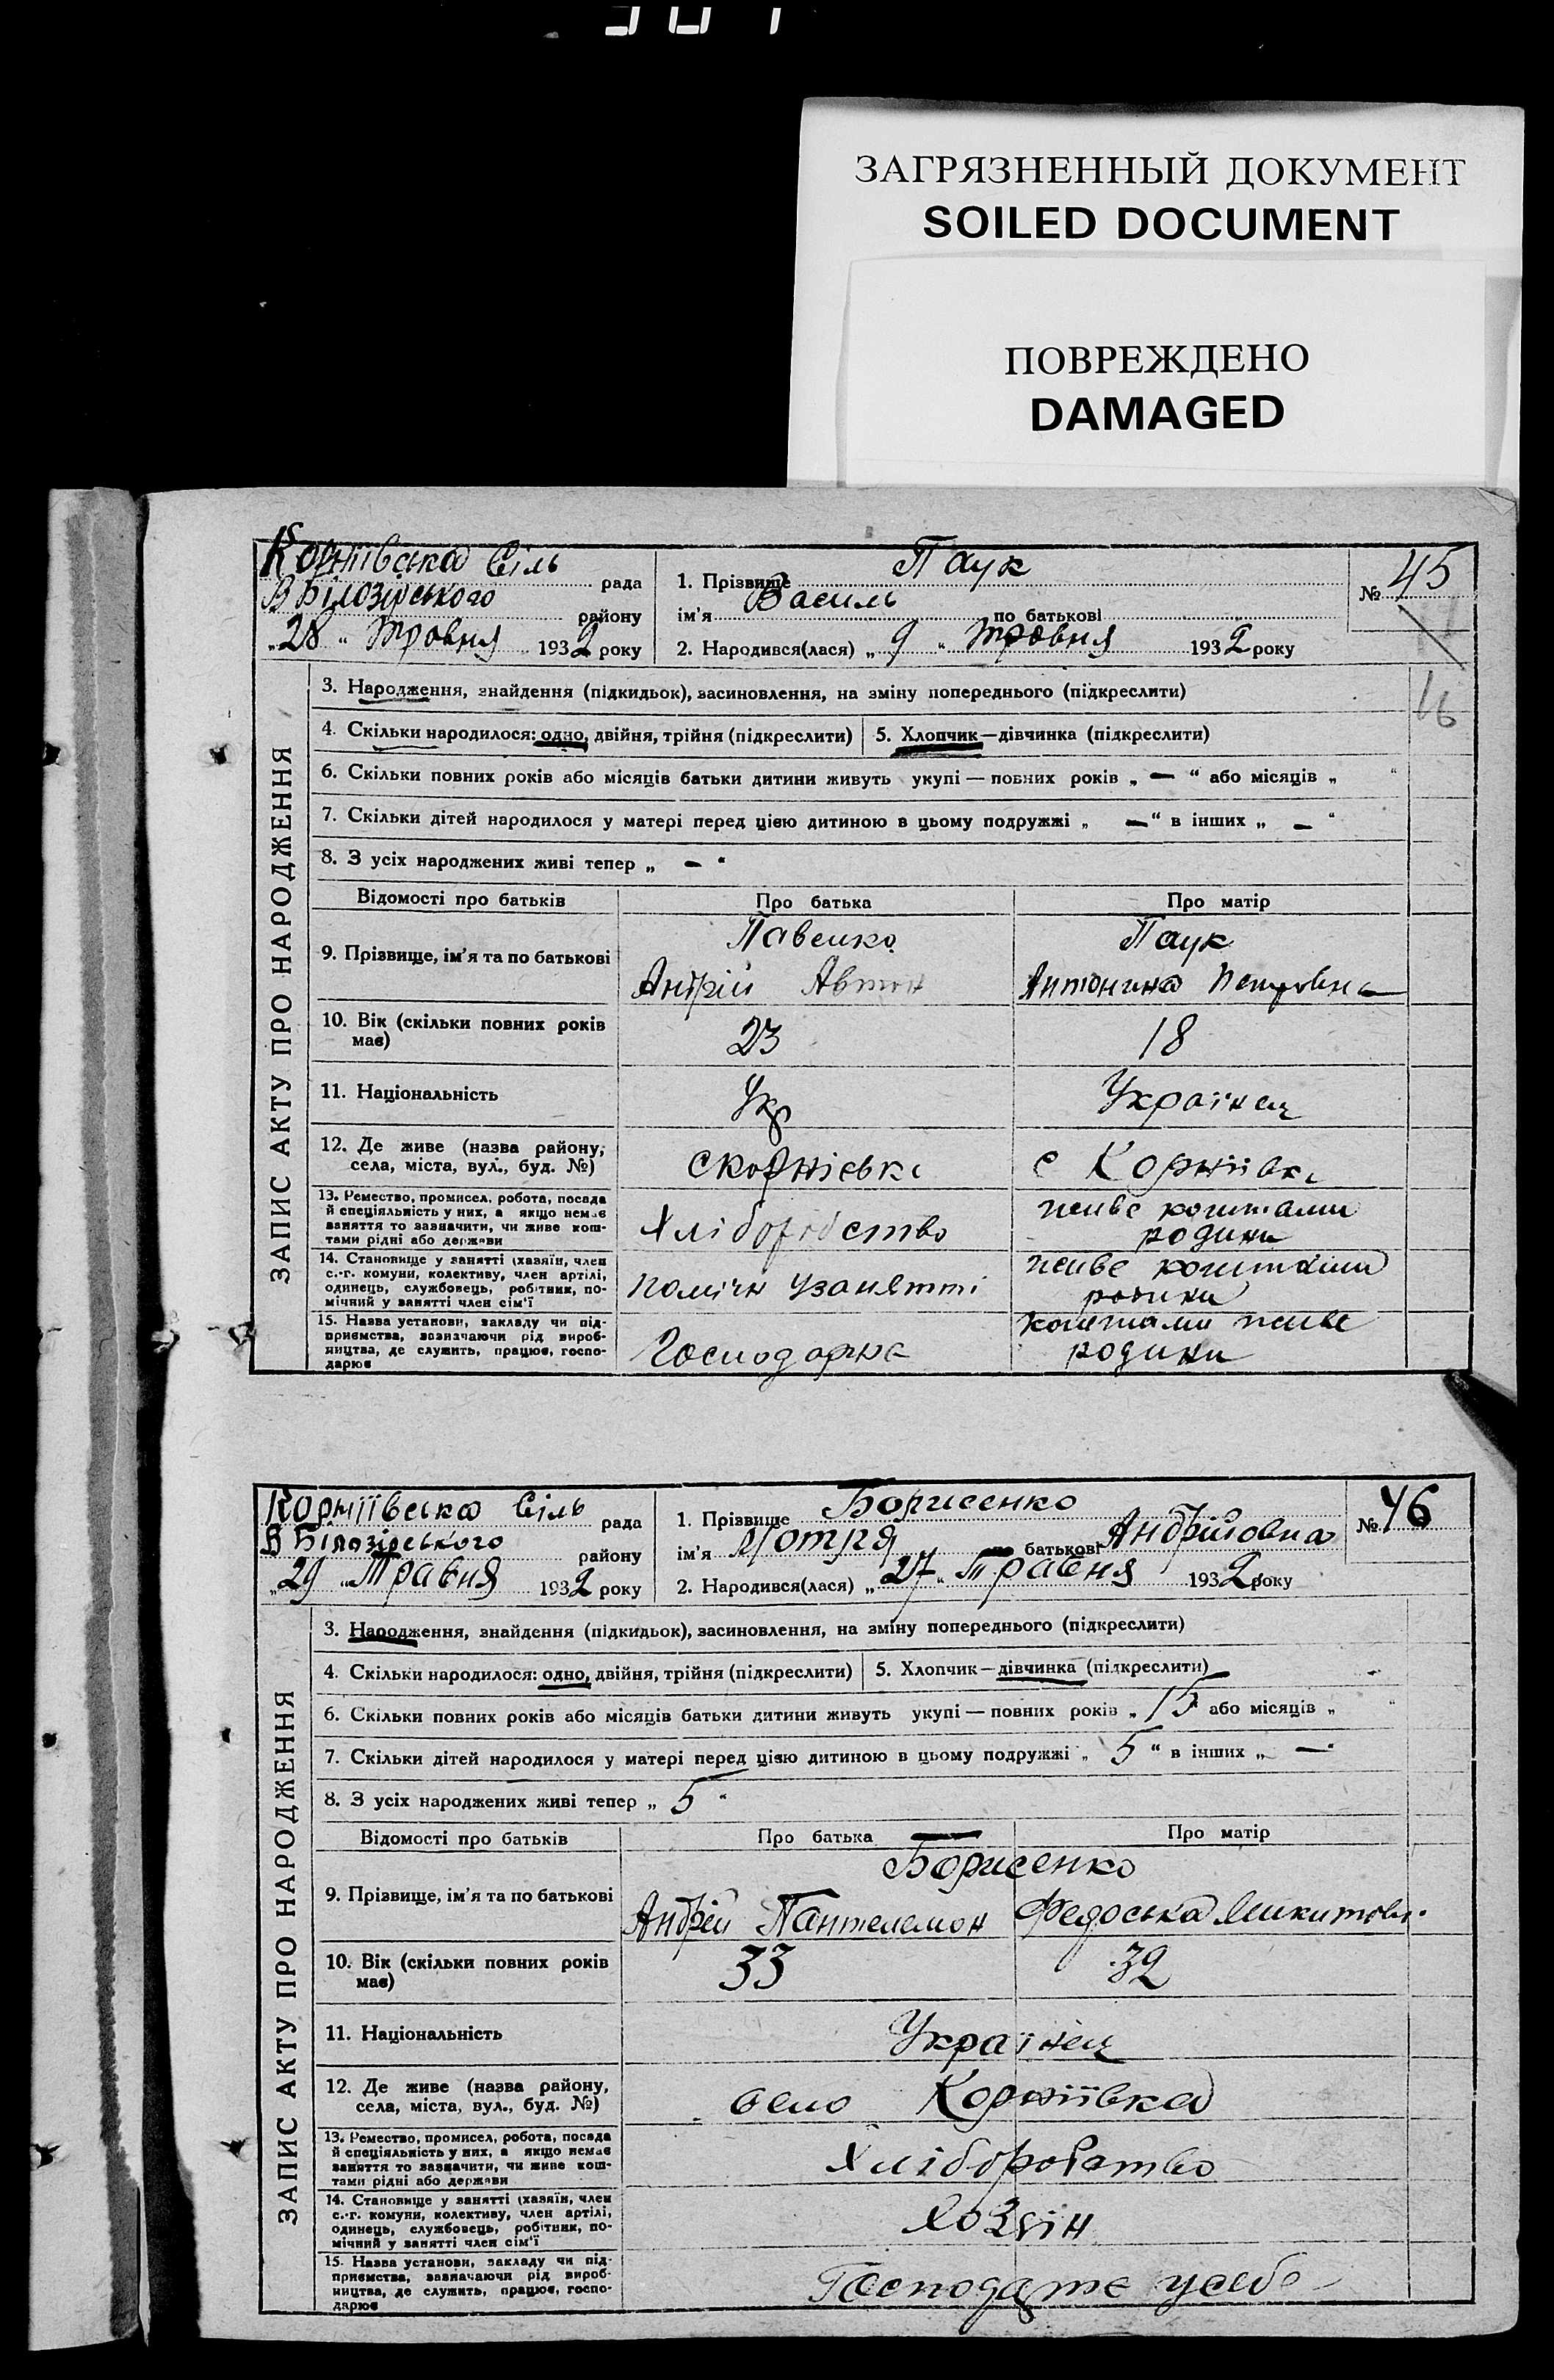 ЗАГРЯЗНЕННЫЙ ДОКУМЕНТ
SOILED DOCUMENT
ПОВРЕЖДЕНО
DAMAGED
Корніївська Сіль рада
В Білозірського району
„28“ Травня 1932 року
1. Прізвище Паук
ім'я Василь по батькові
2. Народився(лася) „9“ Травня 1932 року
№ 45
16
ЗАПИС АКТУ ПРО НАРОДЖЕННЯ
3. Народження, знайдення (підкидьок), засиновлення, на зміну попереднього (підкреслити)
4. Скільки народилося: одно, двійня, трійня (підкреслити) 5. Хлопчик—дівчинка (підкреслити)
6. Скільки повних років або місяців батьки дитини живуть укупі — повних років „ — “ або місяців „ “
7. Скільки дітей народилося у матері перед цією дитиною в цьому подружжі „ — “ в інших „ — “
8. З усіх народжених живі тепер „ — “
Відомості про батьків Про батька Про матір
9. Прізвище, ім'я та по батькові
Павенко
Андрій Автон
Паук
Антонина Петровна
10. Вік (скільки повних років має) 23 18
11. Національність Укр Українец
12. Де живе (назва району,
села, міста, вул., буд. №)
с Корнієвкі с Корніївкі
13. Ремество, промисел, робота, посада
й спеціяльність у них, а якщо немає
заняття то зазначити, чи живе кош-
тами рідні або держави
Хліборобство
живе коштами
родини
14. Становище у занятті (хазяїн, член
с.-г. комуни, колективу, член артілі,
одинець, службовець, робітник, по-
мічний у занятті член сім'ї
помічн узанятті
живе коштами
родини
15. Назва установи, закладу чи під-
приємства, зазначаючи рід вироб-
ництва, де служить, працює, госпо-
дарює
коштами живе
родини
Корніївська Сіль рада
В Білозірського району
„29“ Травня 1932 року
1. Прізвище Борисенко
ім'я Мотря по батькові Андрійовна
2. Народився(лася) „27“ Травня 1932 року
№ 46
ЗАПИС АКТУ ПРО НАРОДЖЕННЯ
3. Народження, знайдення (підкидьок), засиновлення, на зміну попереднього (підкреслити)
4. Скільки народилося: одно, двійня, трійня (підкреслити) 5. Хлопчик—дівчинка (підкреслити)
6. Скільки повних років або місяців батьки дитини живуть укупі — повних років „15“ або місяців „ “
7. Скільки дітей народилося у матері перед цією дитиною в цьому подружжі „5“ в інших „ — “
8. З усіх народжених живі тепер „5“
Відомості про батьків Про батька Про матір
9. Прізвище, ім'я та по батькові
Борисенко
Андрій Пантелемон Федоська Микитовн.
10. Вік (скільки повних років має) 33 32
11. Національність Українец
12. Де живе (назва району,
села, міста, вул., буд. №)
село Корніївка
13. Ремество, промисел, робота, посада
й спеціяльність у них, а якщо немає
заняття то зазначити, чи живе кош-
тами рідні або держави
Хліборобство
14. Становище у занятті (хазяїн, член
с.-г. комуни, колективу, член артілі,
одинець, службовець, робітник, по-
мічний у занятті член сім'ї
Хозяїн
15. Назва установи, закладу чи під-
приємства, зазначаючи рід вироб-
ництва, де служить, працює, госпо-
дарює
усебе